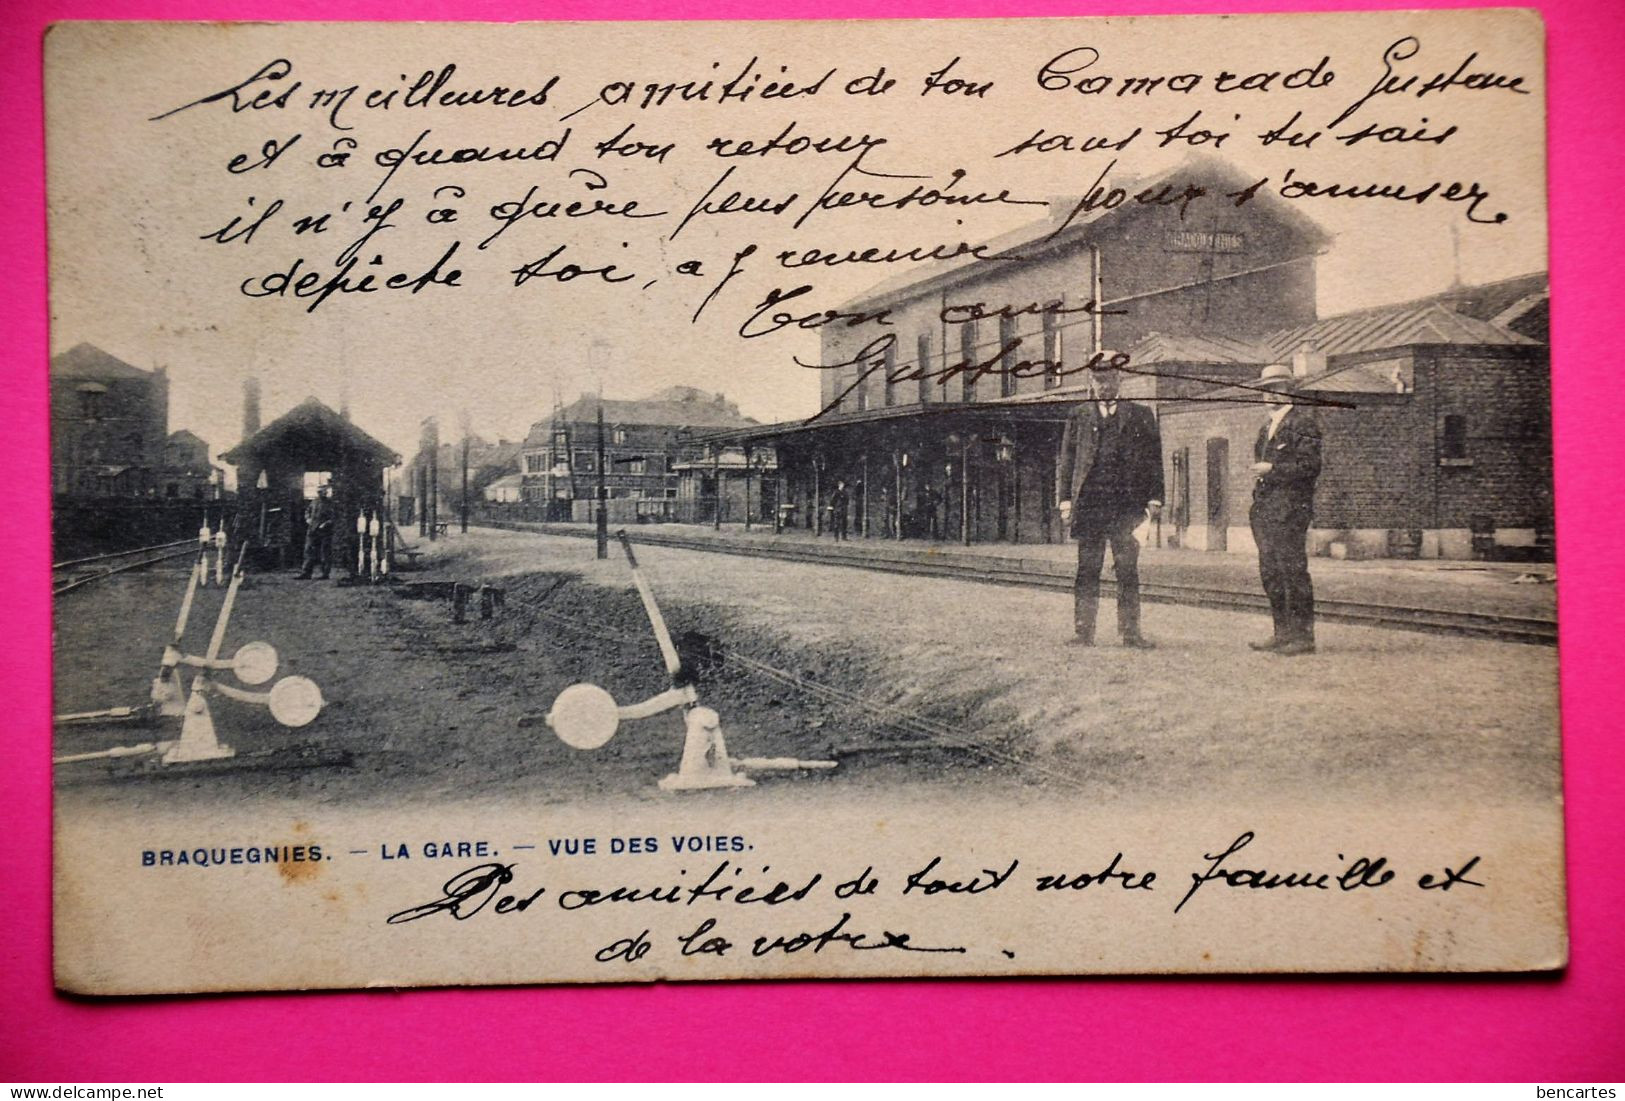 Les meilleures amitiées de ton Camarade Gustave
et à quand ton retour sans toi tu sais
il n'y à quère persôme pour s'amuser
depèche toi, a y revenir
Ton ami
Gustave
BRAQUEGNIES
BRAQUEGNIES. — LA GARE. — VUE DES VOIES.
Des amitiées de tout notre famille et
de la votre.
bencartes